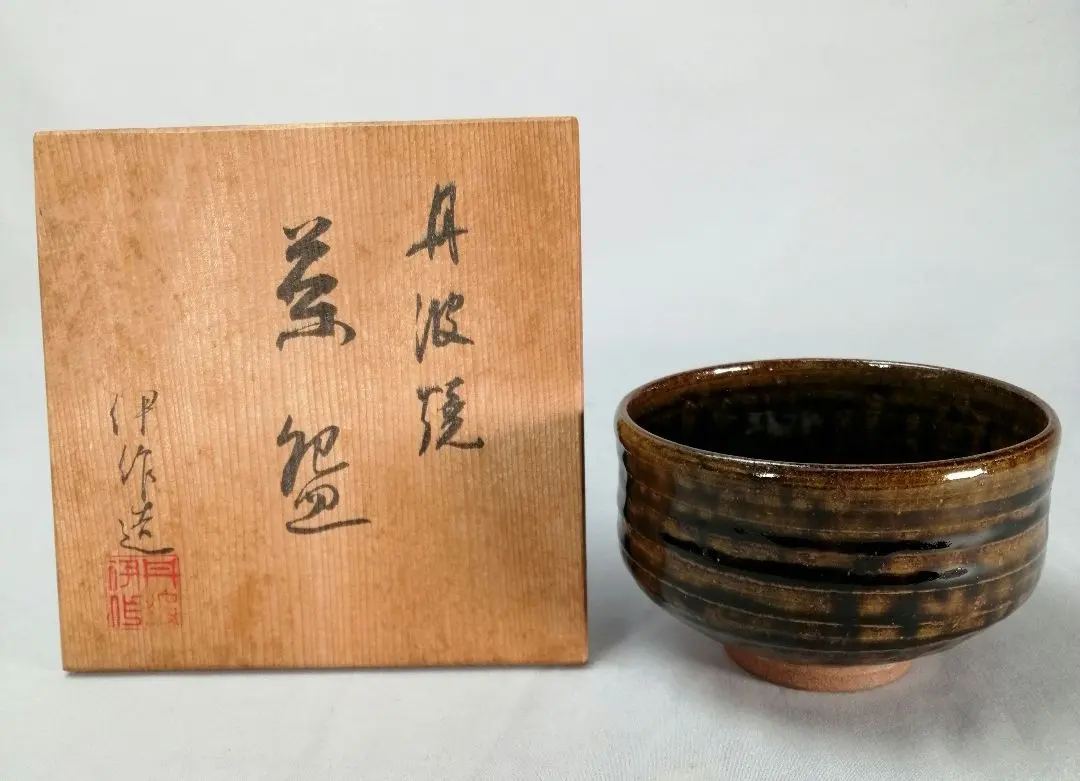 丹波焼
茶盌
伊作造
丹波
伊作